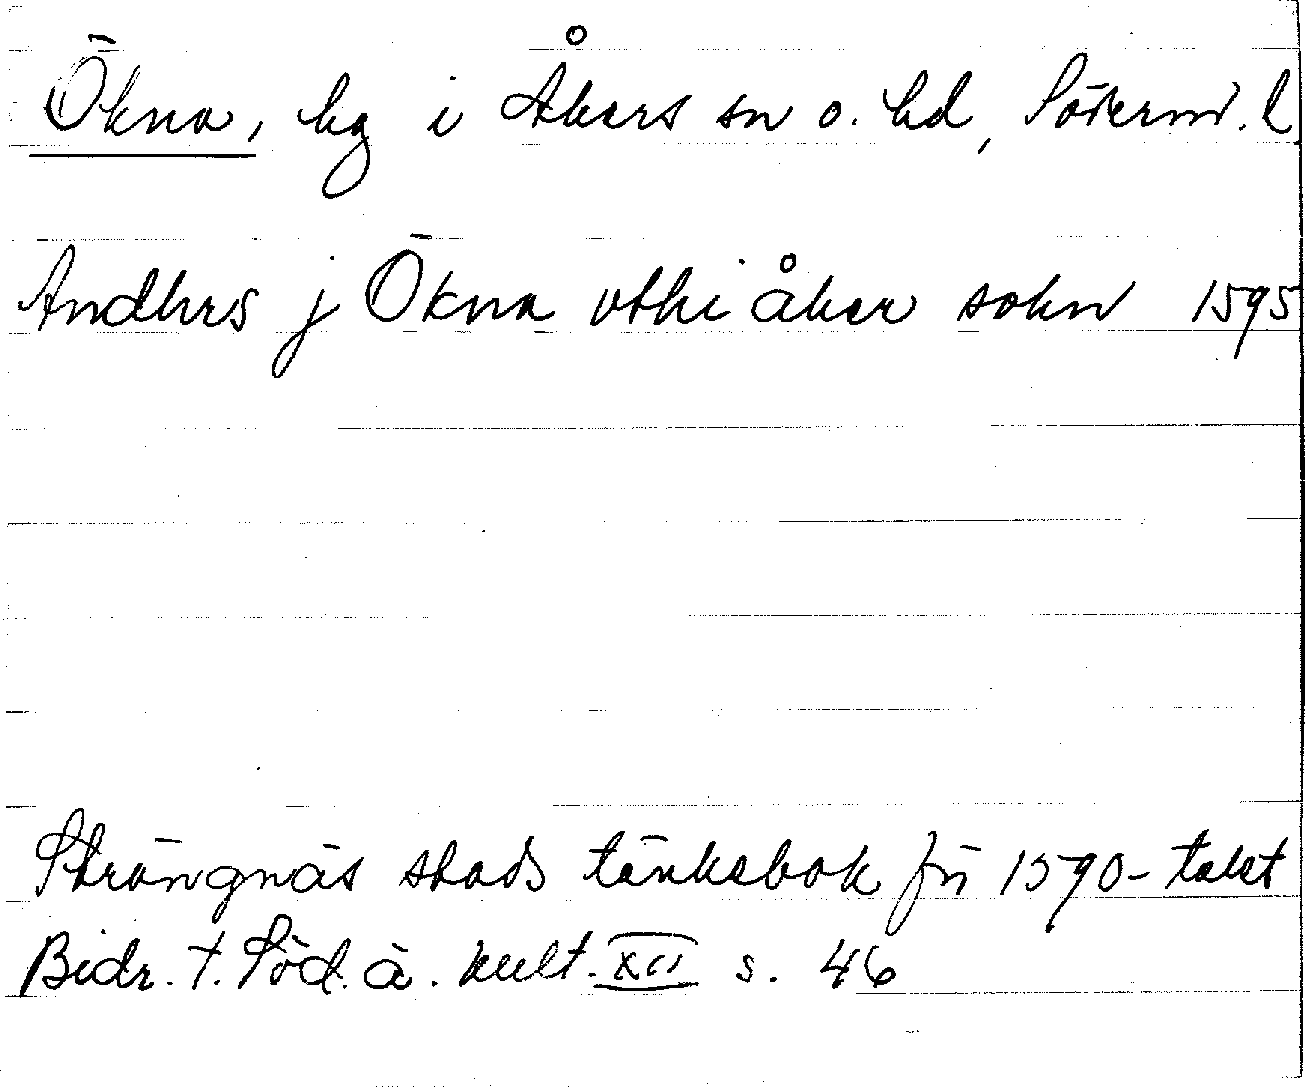 Ökna, hg i Åkers sn o. hd, Söderm. l
Andhrs j Ökna vthi åker sokn 1595
Strängnäs stads tänkebok fr 1590-talet
Bidr. t. Söd. ä. kult. XII s. 46